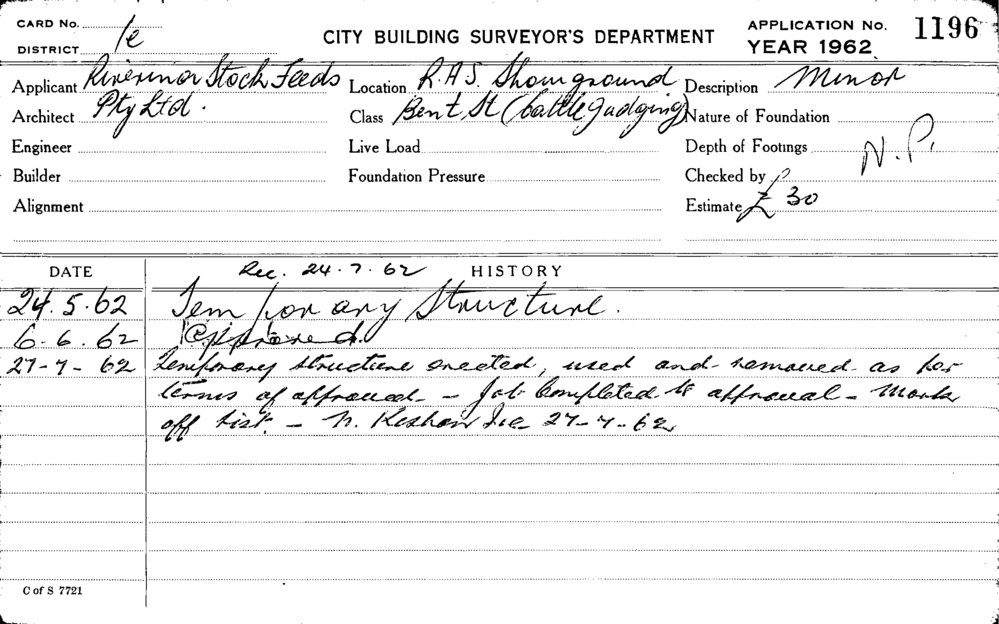 CARD No.
DISTRICT 1e
CITY BUILDING SURVEYOR'S DEPARTMENT
APPLICATION No. 1196
YEAR 1962
Applicant Riverina Stock Feeds
Location R.A.S. Showground
Description Minor
Architect Pty Ltd.
Class Bent St (cattle judging)
Nature of Foundation
Engineer
Live Load
Depth of Footings N.P.
Builder
Foundation Pressure
Checked by
Alignment
Estimate £ 30
DATE
Rec. 24.7.62 HISTORY
24.5.62 Temporary Structure.
6.6.62 Approved.
27-7-62 Temporary structure erected, used and removed as per
terms of approval. - Job Completed to approval - Mark
off list. - N. 27-7-62
C of S 7721